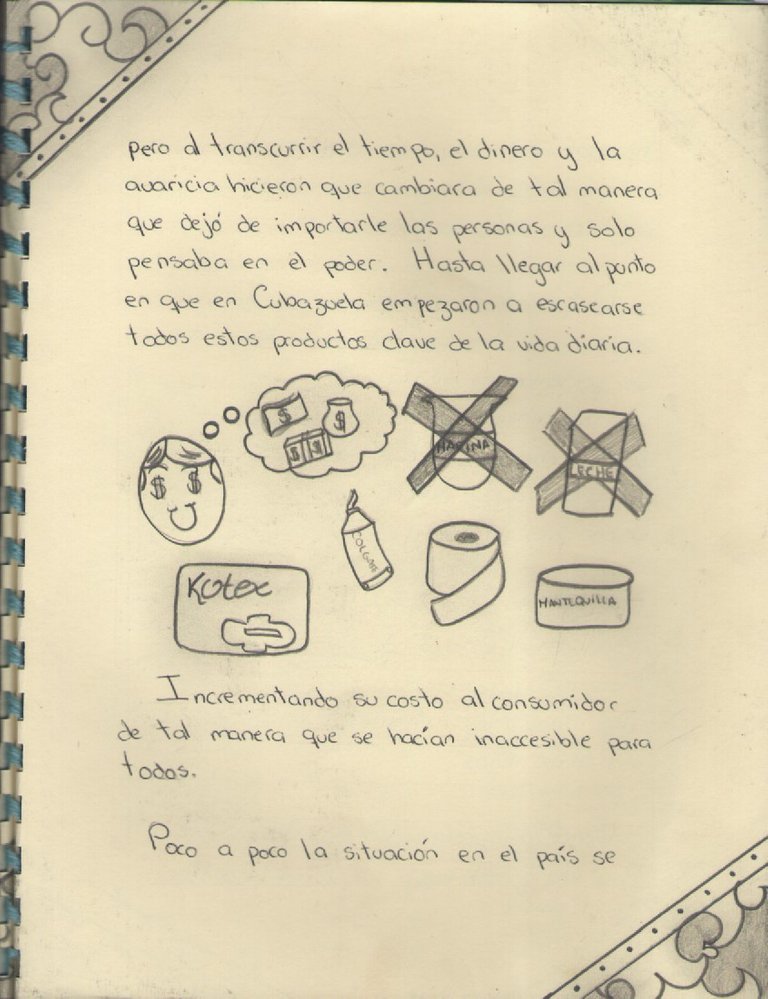 pero al transcurrir el tiempo, el dinero y la
avaricia hicieron que cambiara de tal manera
que dejó de importarle las personas y solo
pensaba en el poder. Hasta llegar al punto
en que en Cubazuela empezaron a escasearse
todos estos productos clave de la vida diaria.
$ $
$ $
$ $ $
HARINA
LECHE
COLGATE
Kotex
MANTEQUILLA
Incrementando su costo al consumidor
de tal manera que se hacían inaccesible para
todos.
Poco a poco la situación en el país se